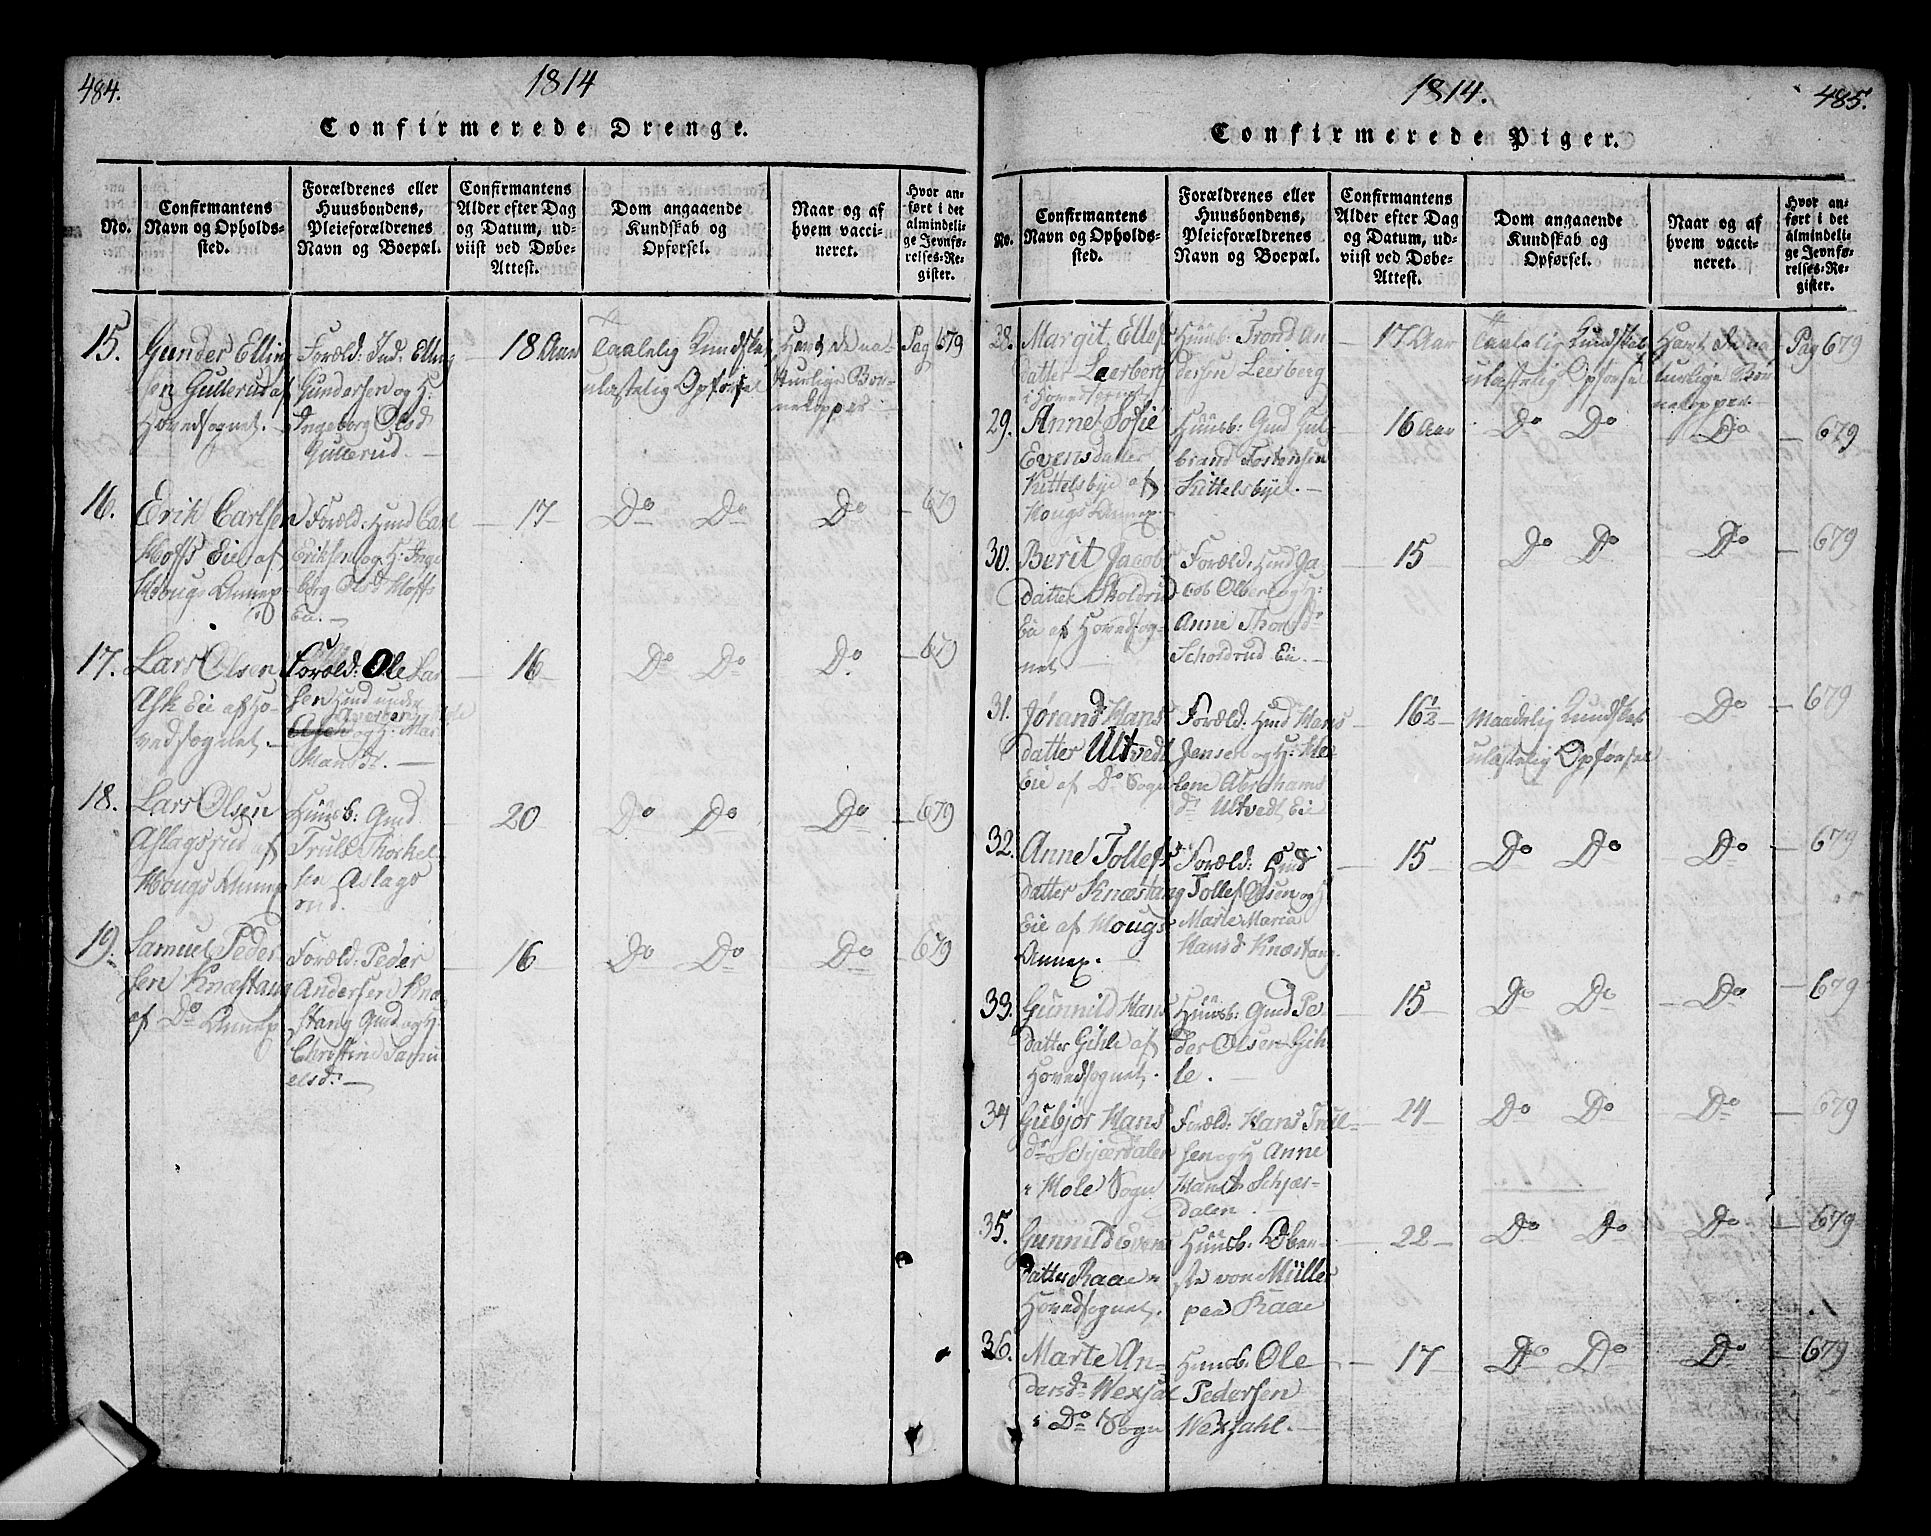 484.
1814
Confirmerede Drenge.
No.
Confirmantens
Navn og Opholds-
sted.
Forældrenes eller
Huusbondens,
Pleieforældrenes
Navn og Boepæl.
Confirmantens
Alder efter Dag
og Datum, ud-
viist ved Døbe-
Attest.
Dom angaaende
Kundskab og
Opførsel.
Naar og af
hvem vacci-
neret.
Hvor an-
ført i det
almindeli-
ge Jevnfø-
relses-Re-
gister.
15.
Gunder Elling
sen Gullerud af
Hovedsognet.
Foræld: Ind: Elling
Gundersen og H:
Ingeborg Olsd
Gullerud.
18 Aar
Taalelig Kundskab
ulastelig Opførsel
Havt de na-
turlige Bør-
nekopper
Pag 679
16.
Erik Carlsen
Hoffs Eie af
Hougs Annex
Foræld: Hmd Carl
Eriksen og H: Inge
borg Olsd Hoffs
Eie.
17
Do Do
Do
679
17.
Lars Olsen
Ask Eie af Ho-
vedsognet.
Foræld: Ole Lar
sen Hmd under
og H: Mar
Hansd:
16
Do Do
Do
679
18.
Lars Olsen
Aslagsrud af
Hougs Annex
Huusb: Gmd
Truls Torkel-
sen Aslags
rud.
20
Do Do
Do
679
19.
Samuel Peder
sen Knæstang
af Do Annex
Foræld: Peder
Andersen Knæ
stang Gmd og H
Christine Samu
elsd:
16
Do Do
Do
679
1814.
485.
Confirmerede Piger.
No.
Confirmantens
Navn og Opholds-
sted.
Forældrenes eller
Huusbondens,
Pleieforældrenes
Navn og Boepæl.
Confirmantens
Alder efter Dag
og Datum, ud-
viist ved Døbe-
Attest.
Dom angaaende
Kundskab og
Opførsel.
Naar og af
hvem vacci-
neret.
Hvor an-
ført i det
almindeli-
ge Jevnfø-
relses-Re-
gister.
28.
Margit Ellefs
datter Leerberg
i Hovedsognet
Huusb: Trond An
dersen Leerberg
17 Aar
Taalelig Kundskab
ulastelig Opførsel
Havt de na
turlige Bør
nekopper
Pag 679
29.
Anne Sofie
Evensdatter
Kittelsbye af
Hougs Annex.
Huusb: Gmd Gul
brand Tostensen
Kittelsbye.
16 Aar
Do Do
Do
679
30.
Berit Jacobs
datter Skoldrud
Eie af Hovedsog-
net
Foræld: Hmd Ja
cob Olsen og H:
Anne Thorsdr
Scholdrud Eie.
15
Do Do
Do
679
31.
Jorand Hans
datter Ultvedt
Eie af Do Sogn
Foræld: Hmd Hans
Jensen og H: He-
lene Abrahams
dr Ultvedt Eie
16 1/2
Maadelig Kundskab
ulastelig Opførsel
Do
679
32.
Anne Tollefs
datter Knæstang
Eie af Hougs
Annex.
Foræld: Hmd
Tollef Olsen og H
Marie Maria
Hansd Knæstang
15
Do Do
Do
679
33.
Gunnild Hans
datter Gihle af
Hovedsognet.
Huusb: Gmd Pe
der Olsen Gih
le.
15
Do Do
Do
679
34
Gubjør Hans
dr Schjærdalen
i Hole Sogn
Foræld: Hans Trul-
sen og H Anne
Hansd Schjær-
dalen.
24
Do Do
Do
679
35.
Gunnild Evens
datter Raae i
Hovedsognet.
Huusb. Ober-
ste von Müller
paa Raae
22
Do Do
Do
679
36.
Marte An-
dersdr Wexsal
i Do Sogn
Huusb. Ole
Pedersen
Wexsahl.
17
Do Do
Do
679